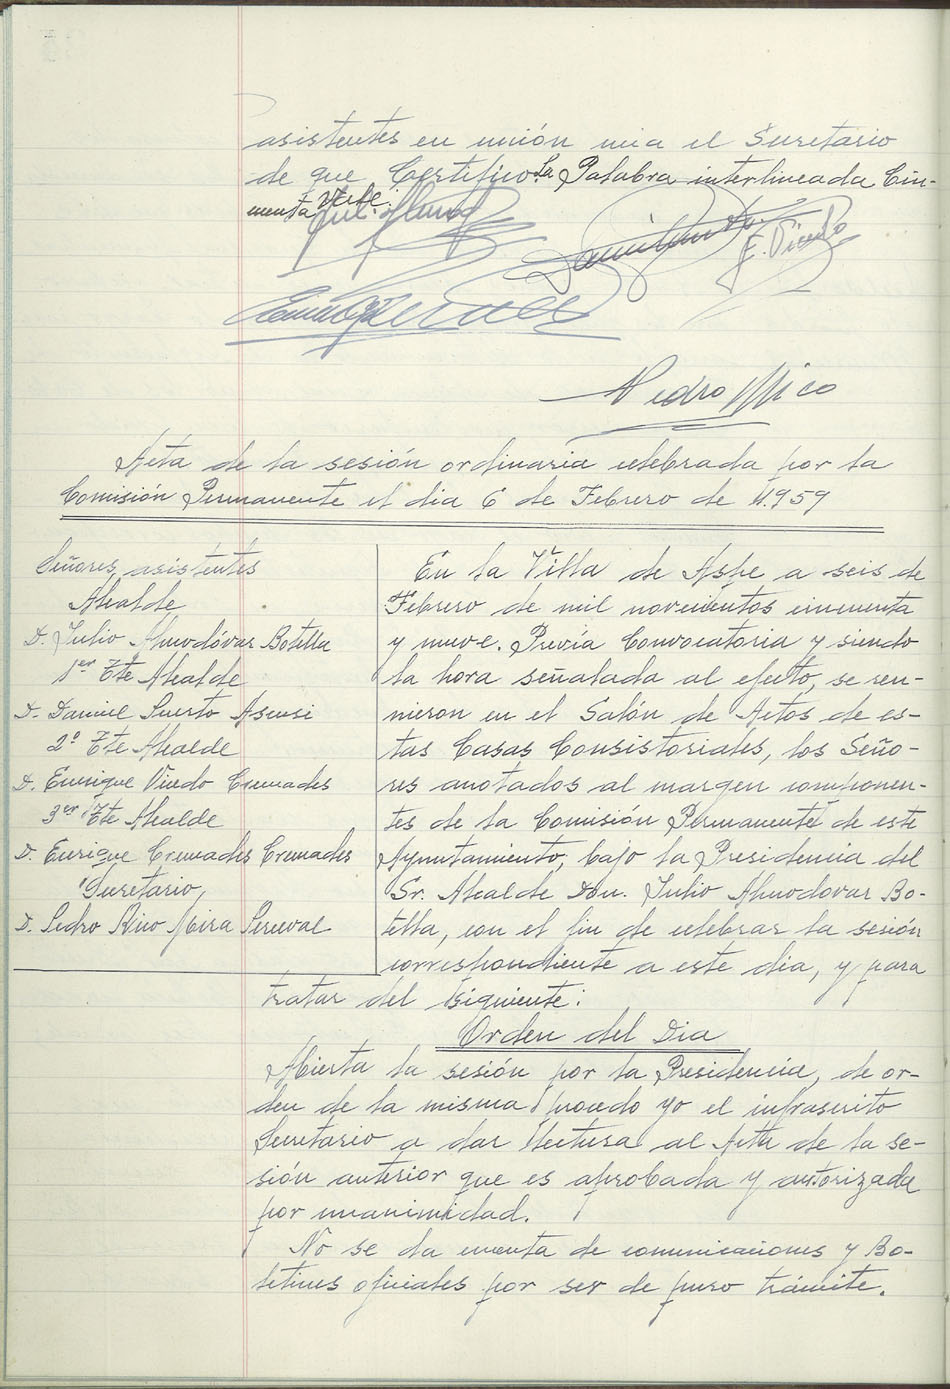 asistentes en unión mia el Secretario
de que Certifico. La Palabra interlineada Cin-
cuenta Vale.
Pedro Mico
Acta de la sesión ordinaria celebrada por la
Comisión Permanente el dia 6 de Febrero de 1.959
Señores asistentes
Alcalde
D. Julio Almodóvar Botella
1er Tte Alcalde
D. Daniel Puerto Asensi
2º Tte Alcalde
D. Enrique Vicedo Cremades
3er Tte Alcalde
D. Enrique Cremades Cremades
Secretario,
D. Pedro Mira Perceval
En la Villa de Aspe a seis de
Febrero de mil novecientos cincuenta
y nueve. Previa Convocatoria y siendo
la hora señalada al efecto, se reu-
nieron en el Salón de Actos de es-
tas Casas Consistoriales, los Seño-
res anotados al margen componen-
tes de la Comisión Permanente de este
Ayuntamiento, bajo la Presidencia del
Sr. Alcalde Don. Julio Almodovar Bo-
tella, con el fin de celebrar la sesión
correspondiente a este dia, y para
tratar del siguiente:
Orden del Dia
Abierta la sesión por la Presidencia, de or-
den de la misma procedo yo el infrascrito
Secretario a dar lectura al Acta de la se-
sión anterior que es aprobada y autorizada
por unanimidad.
No se da cuenta de comunicaciones y Bo-
letines oficiales por ser de puro trámite.